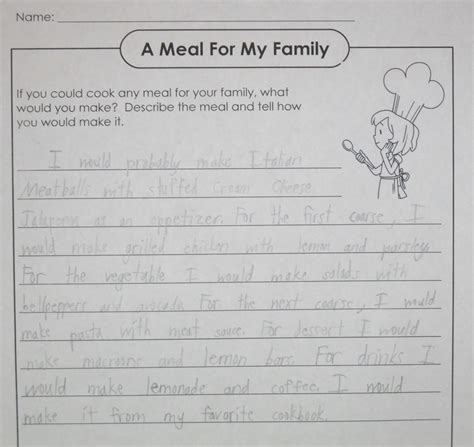 Name:
A Meal For My Family
If you could cook any meal for your family, what
would you make? Describe the meal and tell how
you would make it.
I would probably make Italian
Meatballs with stuffed Cream Cheese
Jalapeno as an appetizer. For the first coarse, I
would make grilled chicken with lemon and parsley.
For the vegetable I would make salads with
bellpeppers and avocado. For the next coarse, I would
make pasta with meat sauce. For dessert I would
make macroons and lemon bars. For drinks I
would make lemonade and coffee. I would
make it from my favorite cookbook.